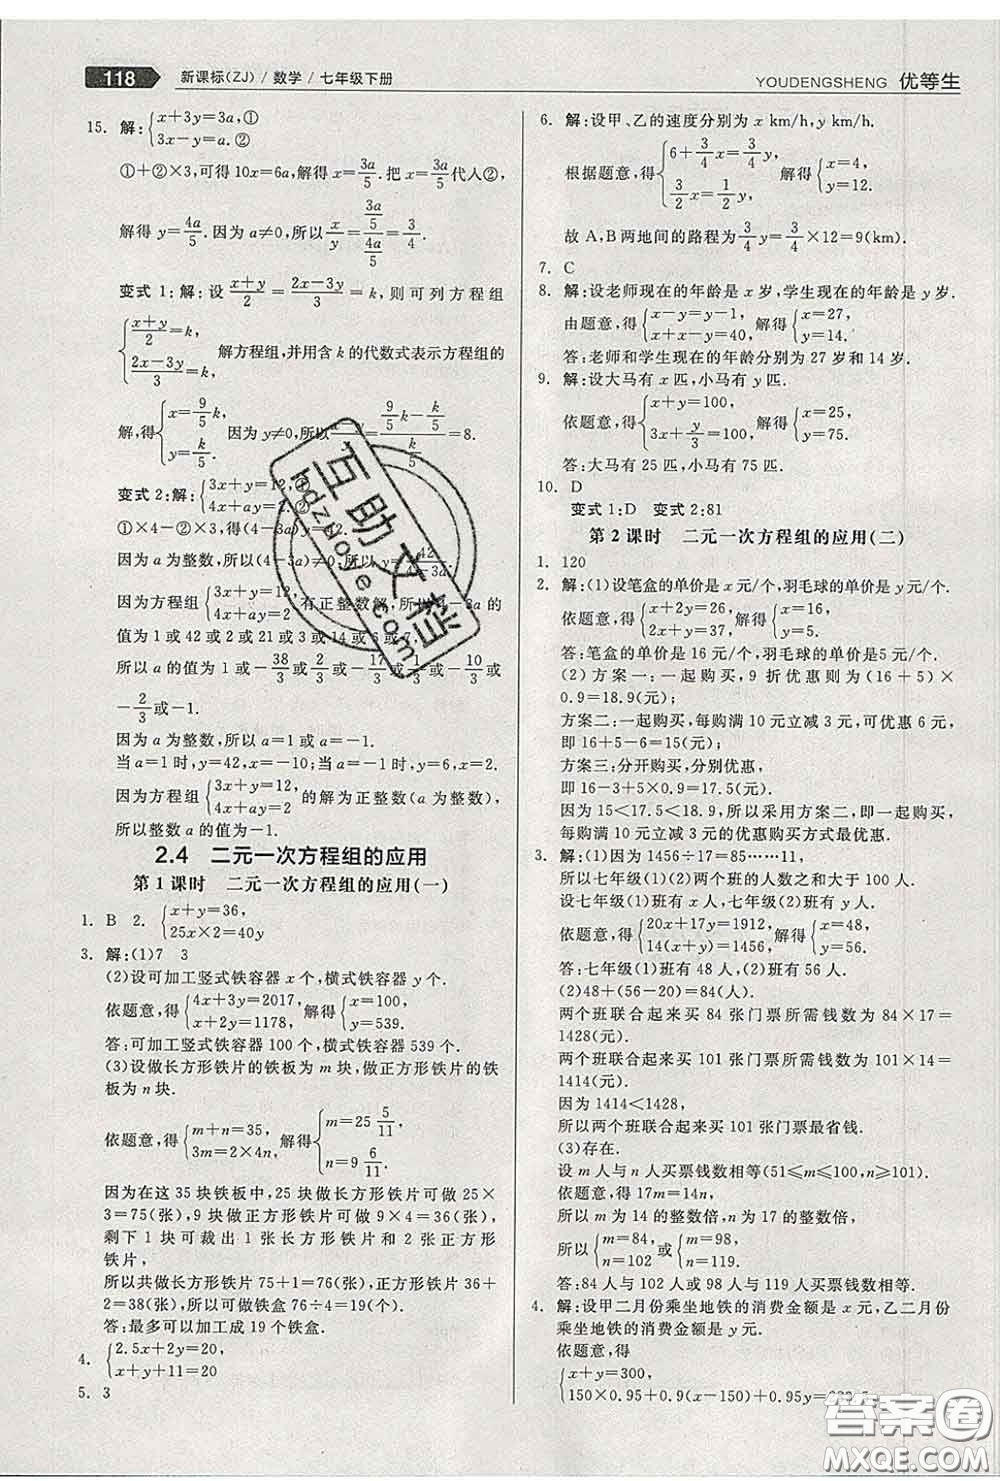 118 新课标(ZJ)/数学/七年级下册
YOUDENGSHENG 优等生
15. 解:{x+3y=3a,①
3x-y=a.②
①+②×3,可得10x=6a,解得x=3a/5.把x=3a/5代人②,
解得y=4a/5.因为a≠0,所以x/y=(3a/5)/(4a/5)=3/4.
变式1:解:设(x+y)/2=(2x-3y)/3=k,则可列方程组
{(x+y)/2=k,
(2x-3y)/3=k, 解方程组,并用含k的代数式表示方程组的
解,得{x=9/5k,
y=k/5. 因为y≠0,所以(9/5k-k/5)/(k/5)=8.
变式2:解:{3x+y=12,①
4x+ay=2.②
①×4-②×3,得(4-3a)y=42.
因为a为整数,所以(4-3a)≠0,所以y=42/(4-3a).
因为方程组{3x+y=12,
4x+ay=2 有正整数解,所以4-3a的
值为1或42或2或21或3或14或6或7,
所以a的值为1或-38/3或2/3或-17/3或1/3或-10/3或
-2/3或-1.
因为a为整数,所以a=1或a=-1.
当a=1时,y=42,x=-10;当a=-1时,y=6,x=2.
因为方程组{3x+y=12,
4x+ay=2 的解为正整数(a为整数),
所以整数a的值为-1.
2.4 二元一次方程组的应用
第1课时 二元一次方程组的应用(一)
1. B 2. {x+y=36,
25x×2=40y
3. 解:(1)7 3
(2)设可加工竖式铁容器x个,横式铁容器y个.
依题意,得{4x+3y=2017,
x+2y=1178, 解得{x=100,
y=539.
答:可加工竖式铁容器100个,横式铁容器539个.
(3)设做长方形铁片的铁板为m块,做正方形铁片的铁
板为n块.
依题意,得{m+n=35,
3m=2×4n, 解得{m=25 5/11,
n=9 6/11.
因为在这35块铁板中,25块做长方形铁片可做25×
3=75(张),9块做正方形铁片可做9×4=36(张),
剩下1块可裁出1张长方形铁片和2张正方形
铁片,
所以共做长方形铁片75+1=76(张),正方形铁片36+
2=38(张),所以可做铁盒76÷4=19(个).
答:最多可以加工成19个铁盒.
4. {2.5x+2y=20,
x+y+11=20
5. 3
6. 解:设甲、乙的速度分别为x km/h,y km/h.
根据题意,得{6+3/4x=3/4y,
3/2x=1/2y, 解得{x=4,
y=12.
故A,B两地间的路程为3/4y=3/4×12=9(km).
7. C
8. 解:设老师现在的年龄是x岁,学生现在的年龄是y岁.
由题意,得{x-y=y-1,
x+x-y=40, 解得{x=27,
y=14.
答:老师和学生现在的年龄分别为27岁和14岁.
9. 解:设大马有x匹,小马有y匹.
依题意,得{x+y=100,
3x+y/3=100, 解得{x=25,
y=75.
答:大马有25匹,小马有75匹.
10. D
变式1:D 变式2:81
第2课时 二元一次方程组的应用(二)
1. 120
2. 解:(1)设笔盒的单价是x元/个,羽毛球的单价是y元/个.
依题意,得{x+2y=26,
2x+y=37, 解得{x=16,
y=5.
答:笔盒的单价是16元/个,羽毛球的单价是5元/个.
(2)方案一:一起购买,9折优惠则为(16+5)×
0.9=18.9(元);
方案二:一起购买,每购满10元立减3元,可优惠6元,
即16+5-6=15(元);
方案三:分开购买,分别优惠,
即16-3+5×0.9=17.5(元).
因为15<17.5<18.9,所以采用方案二,即一起购买,
每购满10元立减3元的优惠购买方式最优惠.
3. 解:(1)因为1456÷17=85……11,
所以七年级(1)(2)两个班的人数之和大于100人,
设七年级(1)班有x人,七年级(2)班有y人.
依题意,得{20x+17y=1912,
14(x+y)=1456, 解得{x=48,
y=56.
答:七年级(1)班有48人,(2)班有56人.
(2)48+(56-20)=84(人).
两个班联合起来买84张门票所需钱数为84×17=
1428(元).
两个班联合起来买101张门票所需钱数为101×14=
1414(元).
因为1414<1428,
所以两个班联合起来买101张门票最省钱.
(3)存在.
设m人与n人买票钱数相等(51≤m≤100,n≥101).
依题意,得17m=14n,
所以m为14的整数倍,n为17的整数倍,
所以{m=84,
n=102 或{m=98,
n=119.
答:84人与102人或98人与119人买票钱数相等.
4. 解:设甲二月份乘坐地铁的消费金额是x元,乙二月份
乘坐地铁的消费金额是y元.
依题意得
{x+y=300,
150×0.95+0.9(x-150)+0.95y=
互助文档
hdzuoye.com
答案圈
MXQE.COM